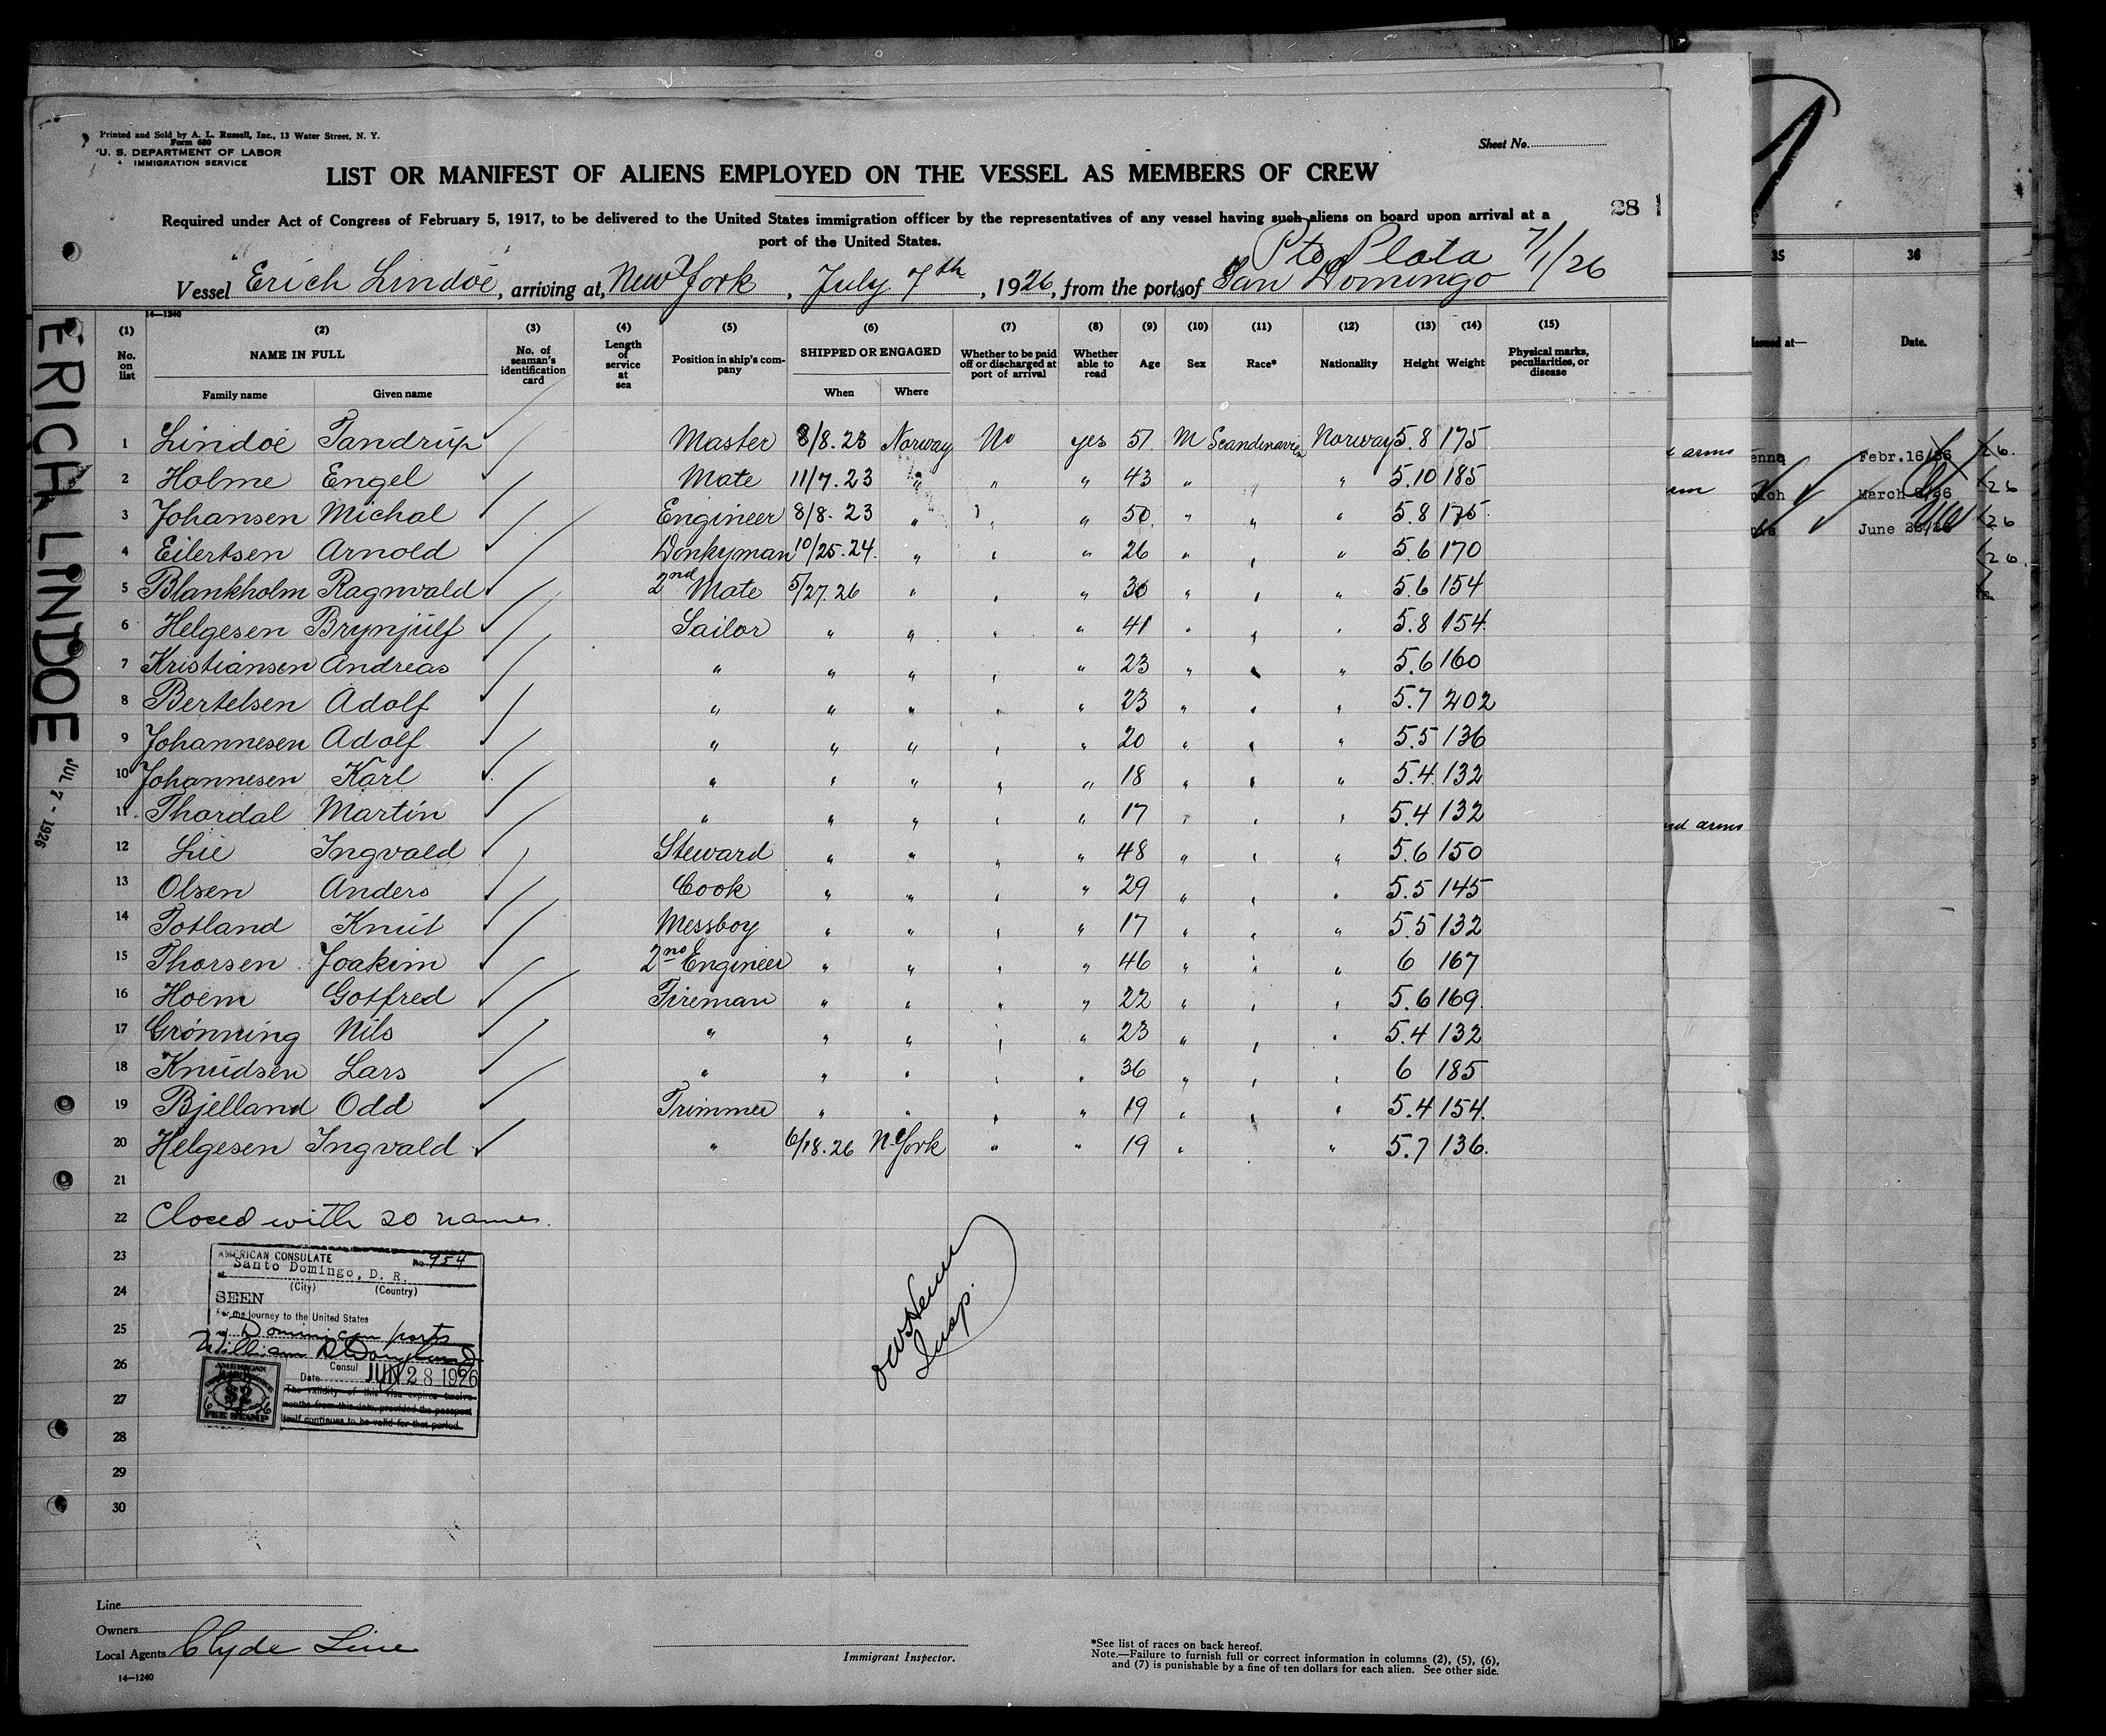 Printed and Sold by A. L. Russell, Inc., 13 Water Street, N. Y.
Form 680
U. S. DEPARTMENT OF LABOR
IMMIGRATION SERVICE
Sheet No.
LIST OR MANIFEST OF ALIENS EMPLOYED ON THE VESSEL AS MEMBERS OF CREW
28
Required under Act of Congress of February 5, 1917, to be delivered to the United States immigration officer by the representatives of any vessel having such aliens on board upon arrival at a
port of the United States.
Pto Plata 7/1/26
Vessel "Erich Lindoe", arriving at, New York, July 7th, 1926, from the ports of San Domingo
14—1240
(1) (2) (3) (4) (5) (6) (7) (8) (9) (10) (11) (12) (13) (14) (15)
No. on list NAME IN FULL Family name Given name No. of seaman's identification card Length of service at sea Position in ship's company SHIPPED OR ENGAGED When Where Whether to be paid off or discharged at port of arrival Whether able to read Age Sex Race* Nationality Height Weight Physical marks, peculiarities, or disease
1 Lindöe Tandrup Master 8/8.23 Norway No yes 51 M Scandinavien Norway 5.8 175
2 Holme Engel Mate 11/7.23 " " " 43 " " " 5.10 185
3 Johansen Michal Engineer 8/8.23 " " " 50 " " " 5.8 175
4 Eilertsen Arnold Donkyman 10/25.24. " " " 26 " " " 5.6 170
5 Blankholm Ragnvald 2nd Mate 5/27.26 " " " 30 " " " 5.6 154
6 Helgesen Brynjulf Sailor " " " " 41 " " " 5.8 154
7 Kristiansen Andreas " " " " " 23 " " " 5.6 160
8 Bertelsen Adolf " " " " " 23 " " " 5.7 202
9 Johannesen Adolf " " " " " 20 " " " 5.5 136
10 Johannesen Karl " " " " " 18 " " " 5.4 132
11 Thordal Martin " " " " " 17 " " " 5.4 132
12 Lie Ingvald Steward " " " " 48 " " " 5.6 150
13 Olsen Anders Cook " " " " 29 " " " 5.5 145
14 Totland Knut Messboy " " " " 17 " " " 5.5 132
15 Thorsen Joakim 2nd Engineer " " " " 46 " " " 6 167
16 Hoem Gotfred Fireman " " " " 22 " " " 5.6 169
17 Grønning Nils " " " " " 23 " " " 5.4 132
18 Knudsen Lars " " " " " 36 " " " 6 185
19 Bjelland Odd Trimmer " " " " 19 " " " 5.4 154
20 Helgesen Ingvald " 6/18.26 N. York " " 19 " " 5.7 136.
21
22 Closed with 20 names.
23
24
25
26
27
28
29
30
AMERICAN CONSULATE No. 954
at Santo Domingo, D. R.
(City) (Country)
SEEN
For the journey to the United States
Dominican ports
William
Consul
Date JUN 28 1926
The validity of this visa expires twelve
months from this date, provided the passport
itself continues to be valid for that period.
AMERICAN
$2
FEE STAMP
Insp.
Line
Owners
Local Agents Clyde Line
14—1240
Immigrant Inspector.
*See list of races on back hereof.
Note.—Failure to furnish full or correct information in columns (2), (5), (6),
and (7) is punishable by a fine of ten dollars for each alien. See other side.
ERICH LINDOE
JUL 7 - 1926
35 36
Issued at— Date.
arms
Febr.16/26
March
June
and arms